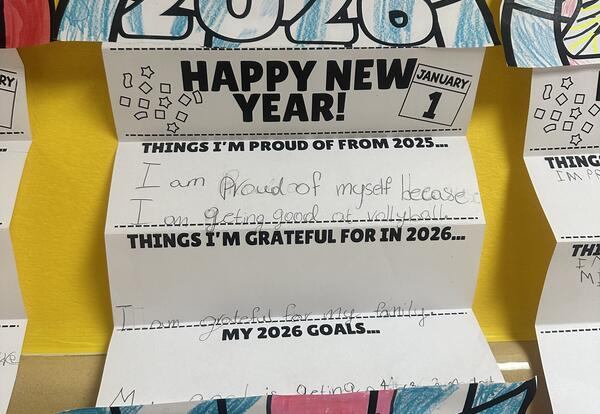 2026
HAPPY NEW
YEAR!
JANUARY
1
THINGS I'M PROUD OF FROM 2025...
I am Proud of myself becase
I am geting good at vollyball
THINGS I'M GRATEFUL FOR IN 2026...
I am grateful for my family.
MY 2026 GOALS...
My goal is geting
RY
THING
IM PR
THI
MI